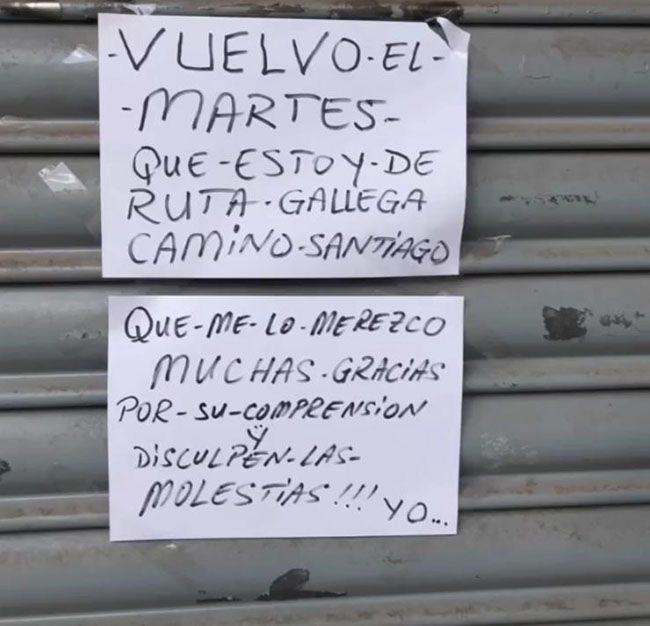 -VUELVO-EL-
-MARTES-
QUE-ESTOY-DE
RUTA-GALLEGA
CAMINO-SANTIAGO
QUE-ME-LO-MEREZCO
MUCHAS-GRACIAS
POR-SU-COMPRENSION
Y
DISCULPEN-LAS-
MOLESTIAS!!! YO...